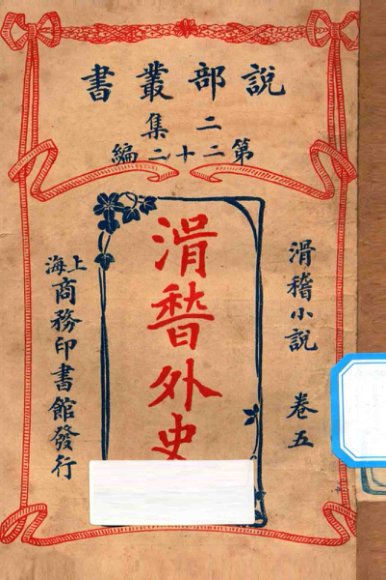 說部叢書
二集
第二十二編
滑稽小說 卷五
滑稽外史
上海商務印書館發行